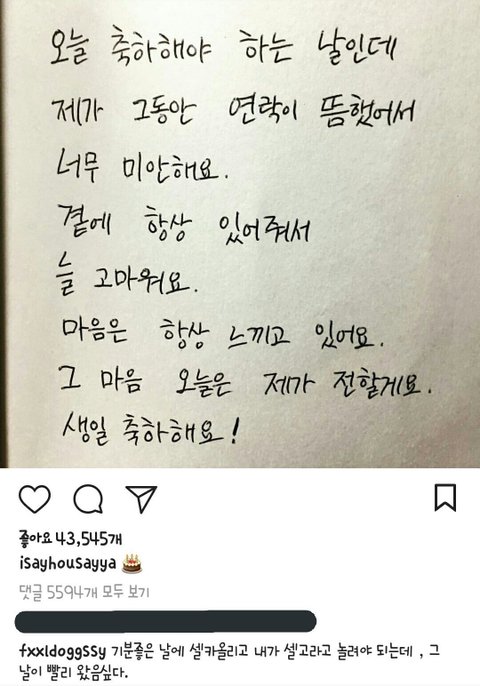 오늘 축하해야 하는 날인데
제가 그동안 연락이 뜸했어서
너무 미안해요.
곁에 항상 있어줘서
늘 고마워요.
마음은 항상 느끼고 있어요.
그 마음 오늘은 제가 전할게요.
생일 축하해요!
좋아요 43,545개
isayhousayya 🎂
댓글 5594개 모두 보기
fxxldoggssy 기분좋은 날에 셀카올리고 내가 셀고라고 놀려야 되는데 , 그
날이 빨리 왔음싶다.